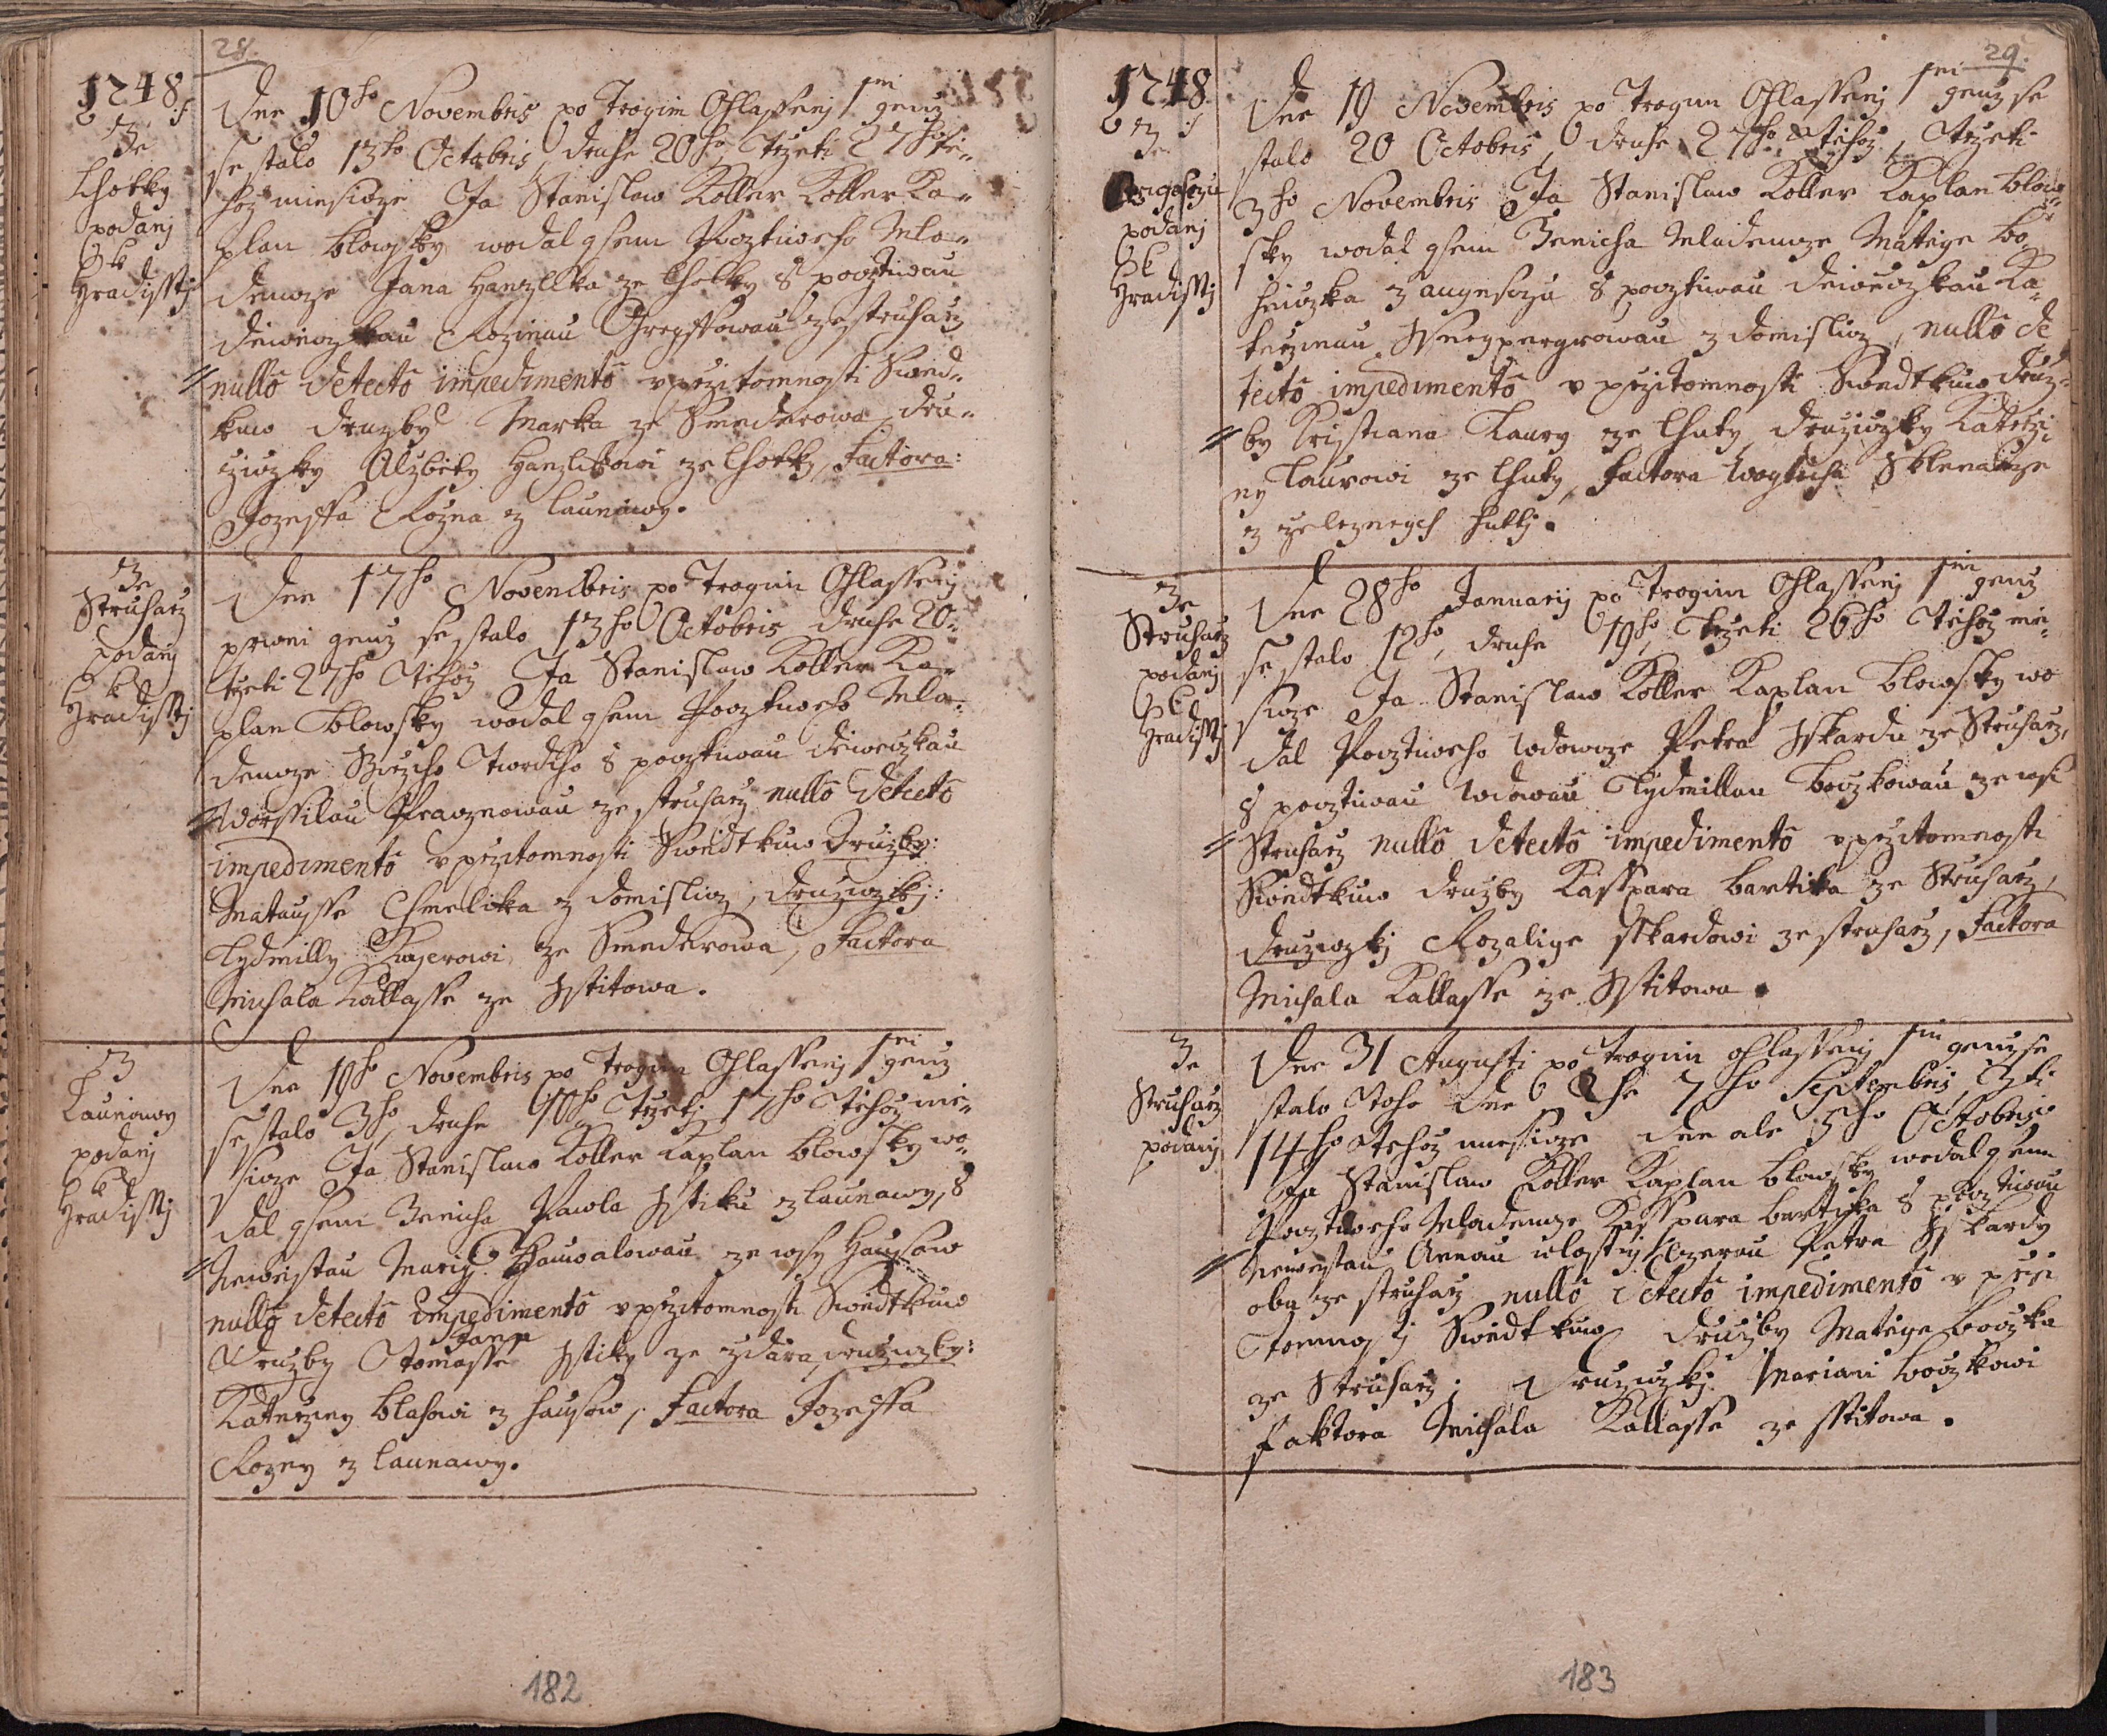 28.
1748
Ze
Lhotky
podanj
k
Hradisstj
Dne 10ho Novembris po Trogim Ohlassenj 1ni genz
se stalo 13ho Octobris, druhe 20ho, Trzeti 27ho te-
hoz miesicze Ja Stanislaw Koller Koller Ka-
plan blowsky wodal gsem Pocztiweho Mla-
dencze Jana Hanzlika ze Lhotky S pocztiwau
deweczkau Rozinau ze struharz
nullo detecto impedimento v przitomnosti Swed-
kuw druzby Marka ze Smederowa, dru-
ziczky Alzbiety Hanzlikowi ze Lhotky, Factora:
Jozeffa Rozna z Launiowy.
Ze
Struharz
podanj
k
Hradisstj
Dne 17ho Novembris po Trogim Ohlassenj
prwni genz se stalo 13ho Octobris druhe 20.
trzeti 27ho Tehoz Ja Stanislaw Koller Ka-
plan blowsky wodal gsem Pocztiweho Mla-
dencze Twrdiho S pocztiwau deweczkau
Worssilau ze struharz nullo detecto
impedimento v przitomnosti Swedtkuw Druzby:
Matausse Chmelika z domislicz, druziczkj:
Lydmilly ze Smederowa, Factora
Michala Kallasse ze Sstitowa.
Z
Launiowy
podanj
k
Hradisstj
Dne 19ho Novembris po Trogim Ohlassenj 1ni genz
se stalo 3ho, druhe 10ho Trzetj 17ho Tehoz mie-
sicze Ja Stanislaw Koller Kaplan blowsky wo-
dal gsem Zenicha Pawla Sstiku z launiowy, S
Newiestau Marigj ze wsy Hausow
nullo detecto impedimento v przitomnosti Swedtkuw
Jana
Druzby Tomasse Sstiky ze zdara, druziczky:
Katerziny blahowi z hausow, Factora Jozeffa
Rozny z launowy.
182
29.
1748
z
podanj
k
Hradisstj
Dne 19 Novembris po Trogim Ohlassenj 1ni genz se
stalo 20 Octobris, druhe 27ho Tehoz, Trzeti
3ho Novembris Ja Stanislaw Koller Kaplan blow-
sky wodal gsem Zenicha Mladencze Matege bo-
S pocztiwau deweczkau Ka-
terzinau z domislicz, nullo de
tecto impedimento v przitomnosti Swedtkuw druz-
by Kristiana Laury ze Lhuty druziczky Katerzi-
ny Laurowi ze Lhuty, Factora Wogticha Sklenarze
z zeleznych huttj.
Ze
Struharz
podanj
k
Hradisstj
Dne 28ho Januarij po Trogim Ohlassenj 1ni genz
se stalo 12ho, druhe 19ho, Trzeti 26ho Tehoz mie-
sicze Ja Stanislaw Koller Kaplan blowsky wo
dal Pocztiweho wdowcze Petra Sskardu ze Struharz,
S pocztiwau wdowau Lydmillau boczkowau ze wsi
Struharz nullo detecto impedimento v przitomnosti
Swedtkuw druzby Kasspara bartika ze Struharz,
druziczkj Rozalige sskardowi ze struharz, Factora
Michala Kallasse ze Sstitowa.
Ze
Struharz
podanj
Dne 31 Augusti po Trogim ohlassenj 1ni genz se
stalo toho dne 2he 7ho Septembris, 3ti
14ho Tehoz miesicze dne ale 5ho Octobris
Ja Stanislaw Koller Kaplan blowsky wodal gsem
Pocztiweho Mladencze Kasspara bartika S pocztiwau
Newiestau Annau wlastnj dczerau Petra Sskardy
oba ze struharz nullo detecto impedimento v przi
tomnostj Swedtkuw druzby Matege boczka
ze Struharz, druziczkj Mariani boczkowi
faktora Michala Kallasse ze sstitowa.
183